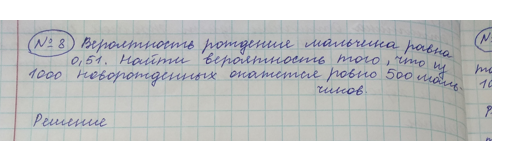 № 8 Вероятность рождение мальчика равна
0,51. Найти вероятность того, что из
1000 новорожденных окажется ровно 500 маль-
чиков.
Решение